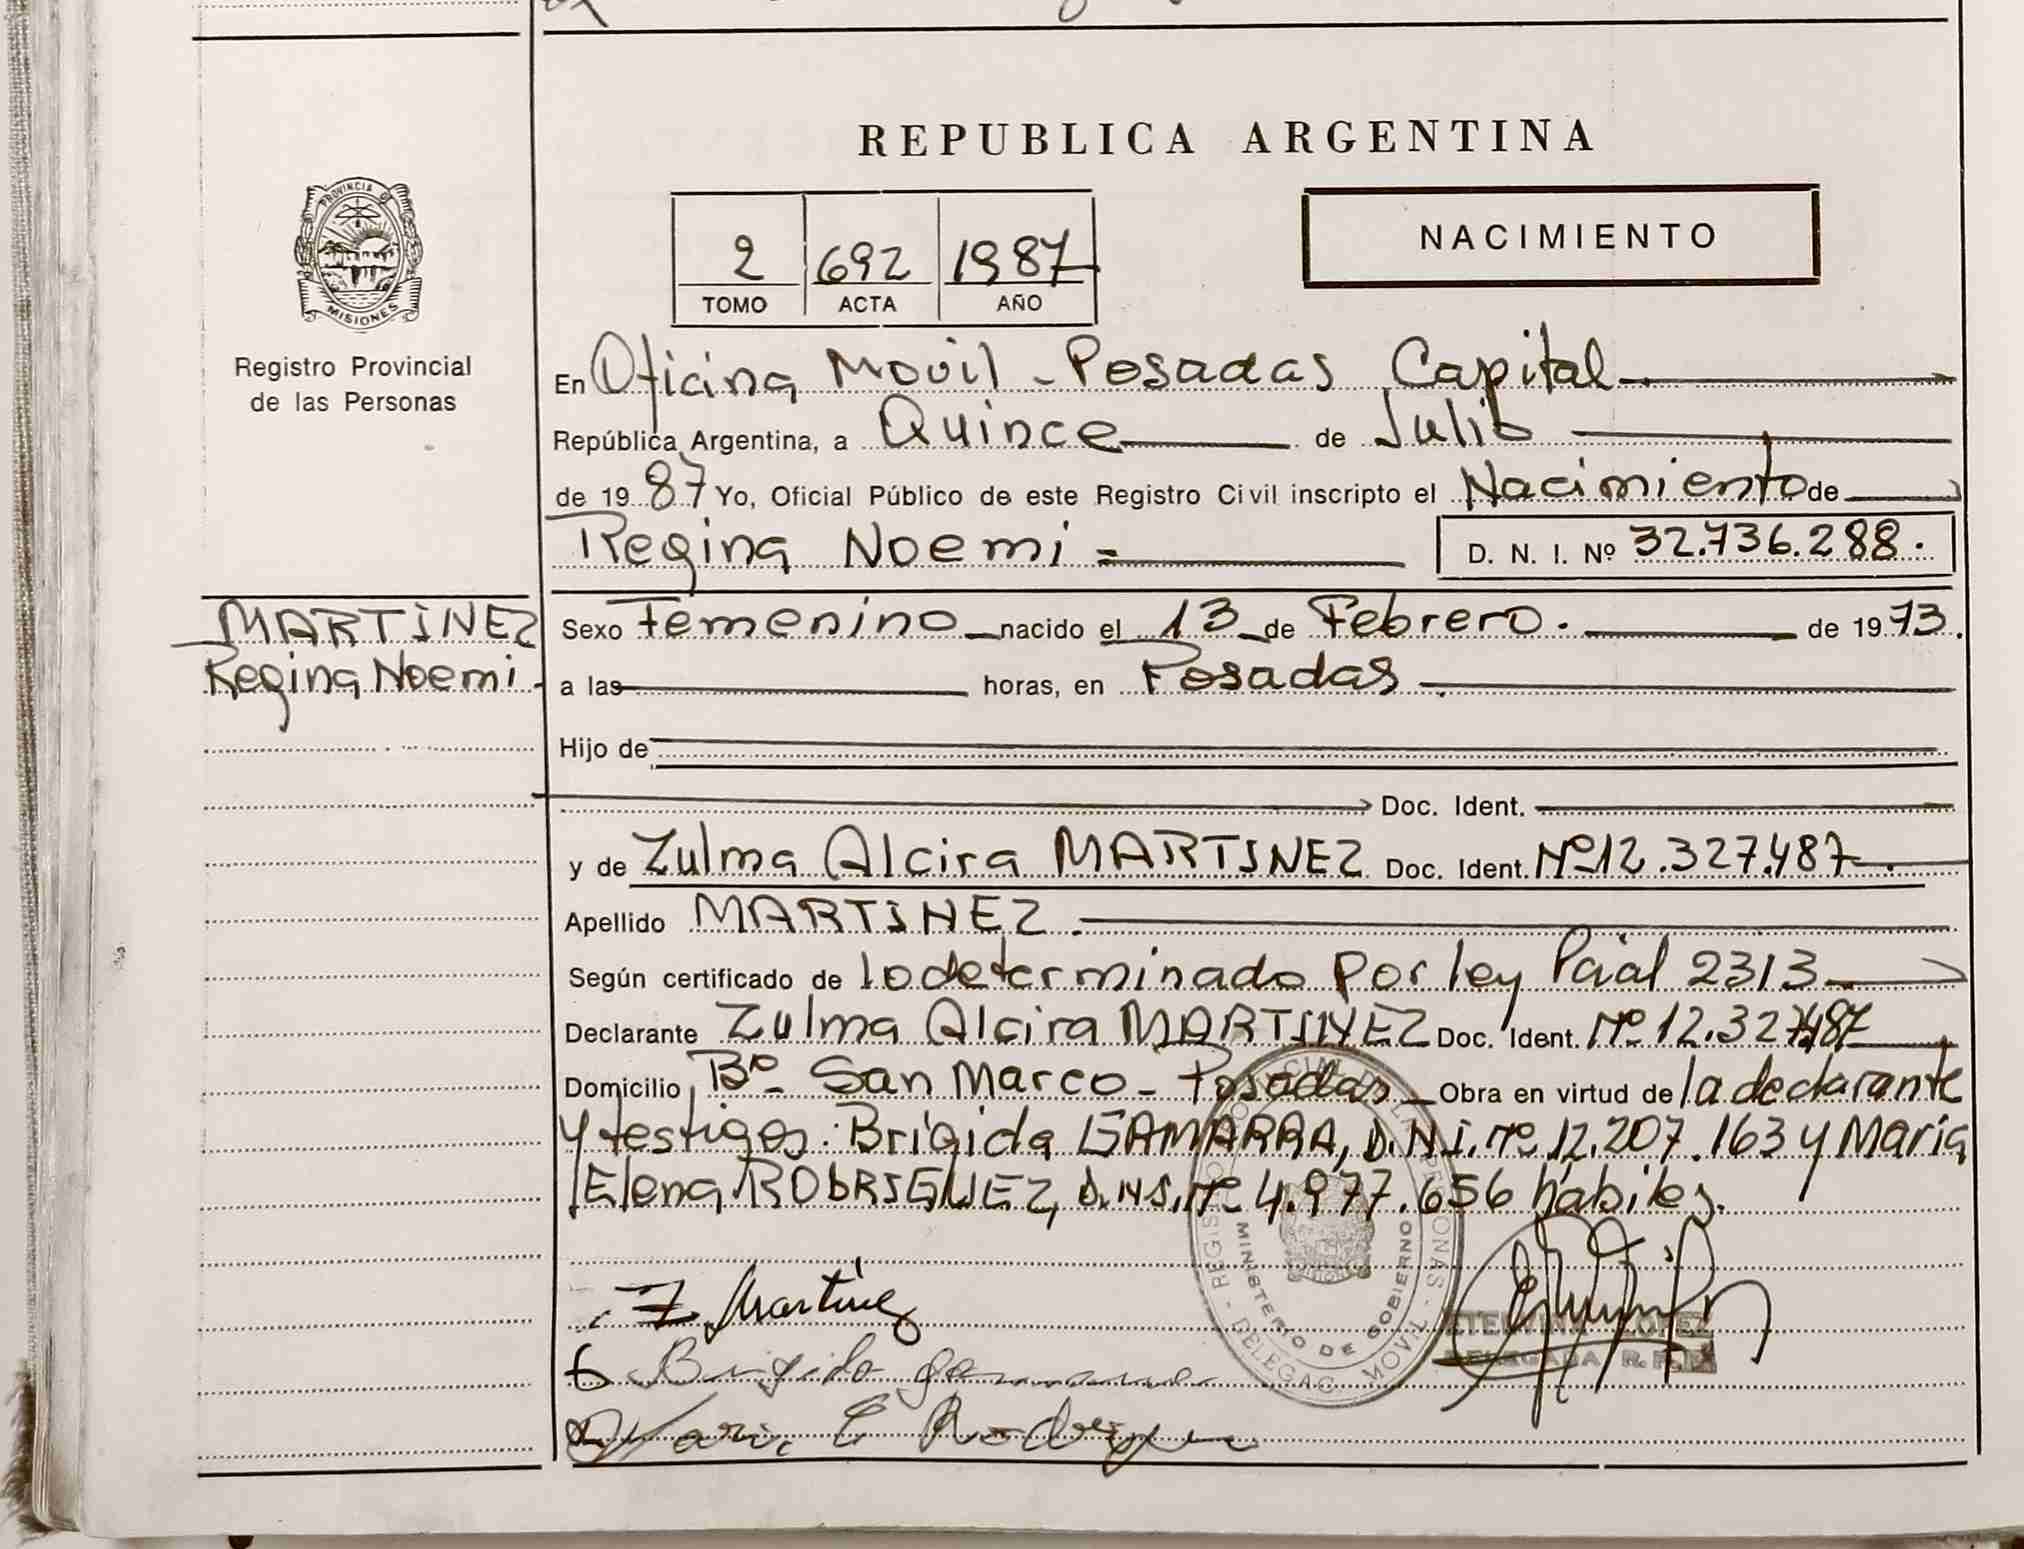 REPUBLICA ARGENTINA
PROVINCIA D
MISIONES
Registro Provincial
de las Personas
NACIMIENTO
2 692 1987
TOMO ACTA AÑO
En Oficina Movil - Posadas Capital
República Argentina, a Quince de Julio
de 1987 Yo, Oficial Público de este Registro Civil inscripto el Nacimiento de
Regina Noemi D. N. I. Nº 32.736.288.
MARTINEZ
Regina Noemi
Sexo Femenino nacido el 13 de Febrero. de 1973.
a las horas, en Posadas
Hijo de
Doc. Ident.
y de Zulma Alcira MARTINEZ Doc. Ident. Nº 12.327.487
Apellido MARTINEZ.
Según certificado de lo determinado por ley Pcial 2313
Declarante Zulma Alcira MARTINEZ Doc. Ident. Nº 12.327.487
Domicilio Bº - San Marco - Posadas Obra en virtud de la declarante
y testigos: Brigida GAMARRA, D.N.I. nº 12.207.163 y Maria
Elena RODRIGUEZ, D.N.I. nº 4.977.656 hábiles.
Z. Martinez
ETELVINA LOPEZ
DELEGADA R.P.P.
Brigida
Maria E Rodriguez
MINISTERIO DE GOBIERNO
DELEGAC. MOVIL